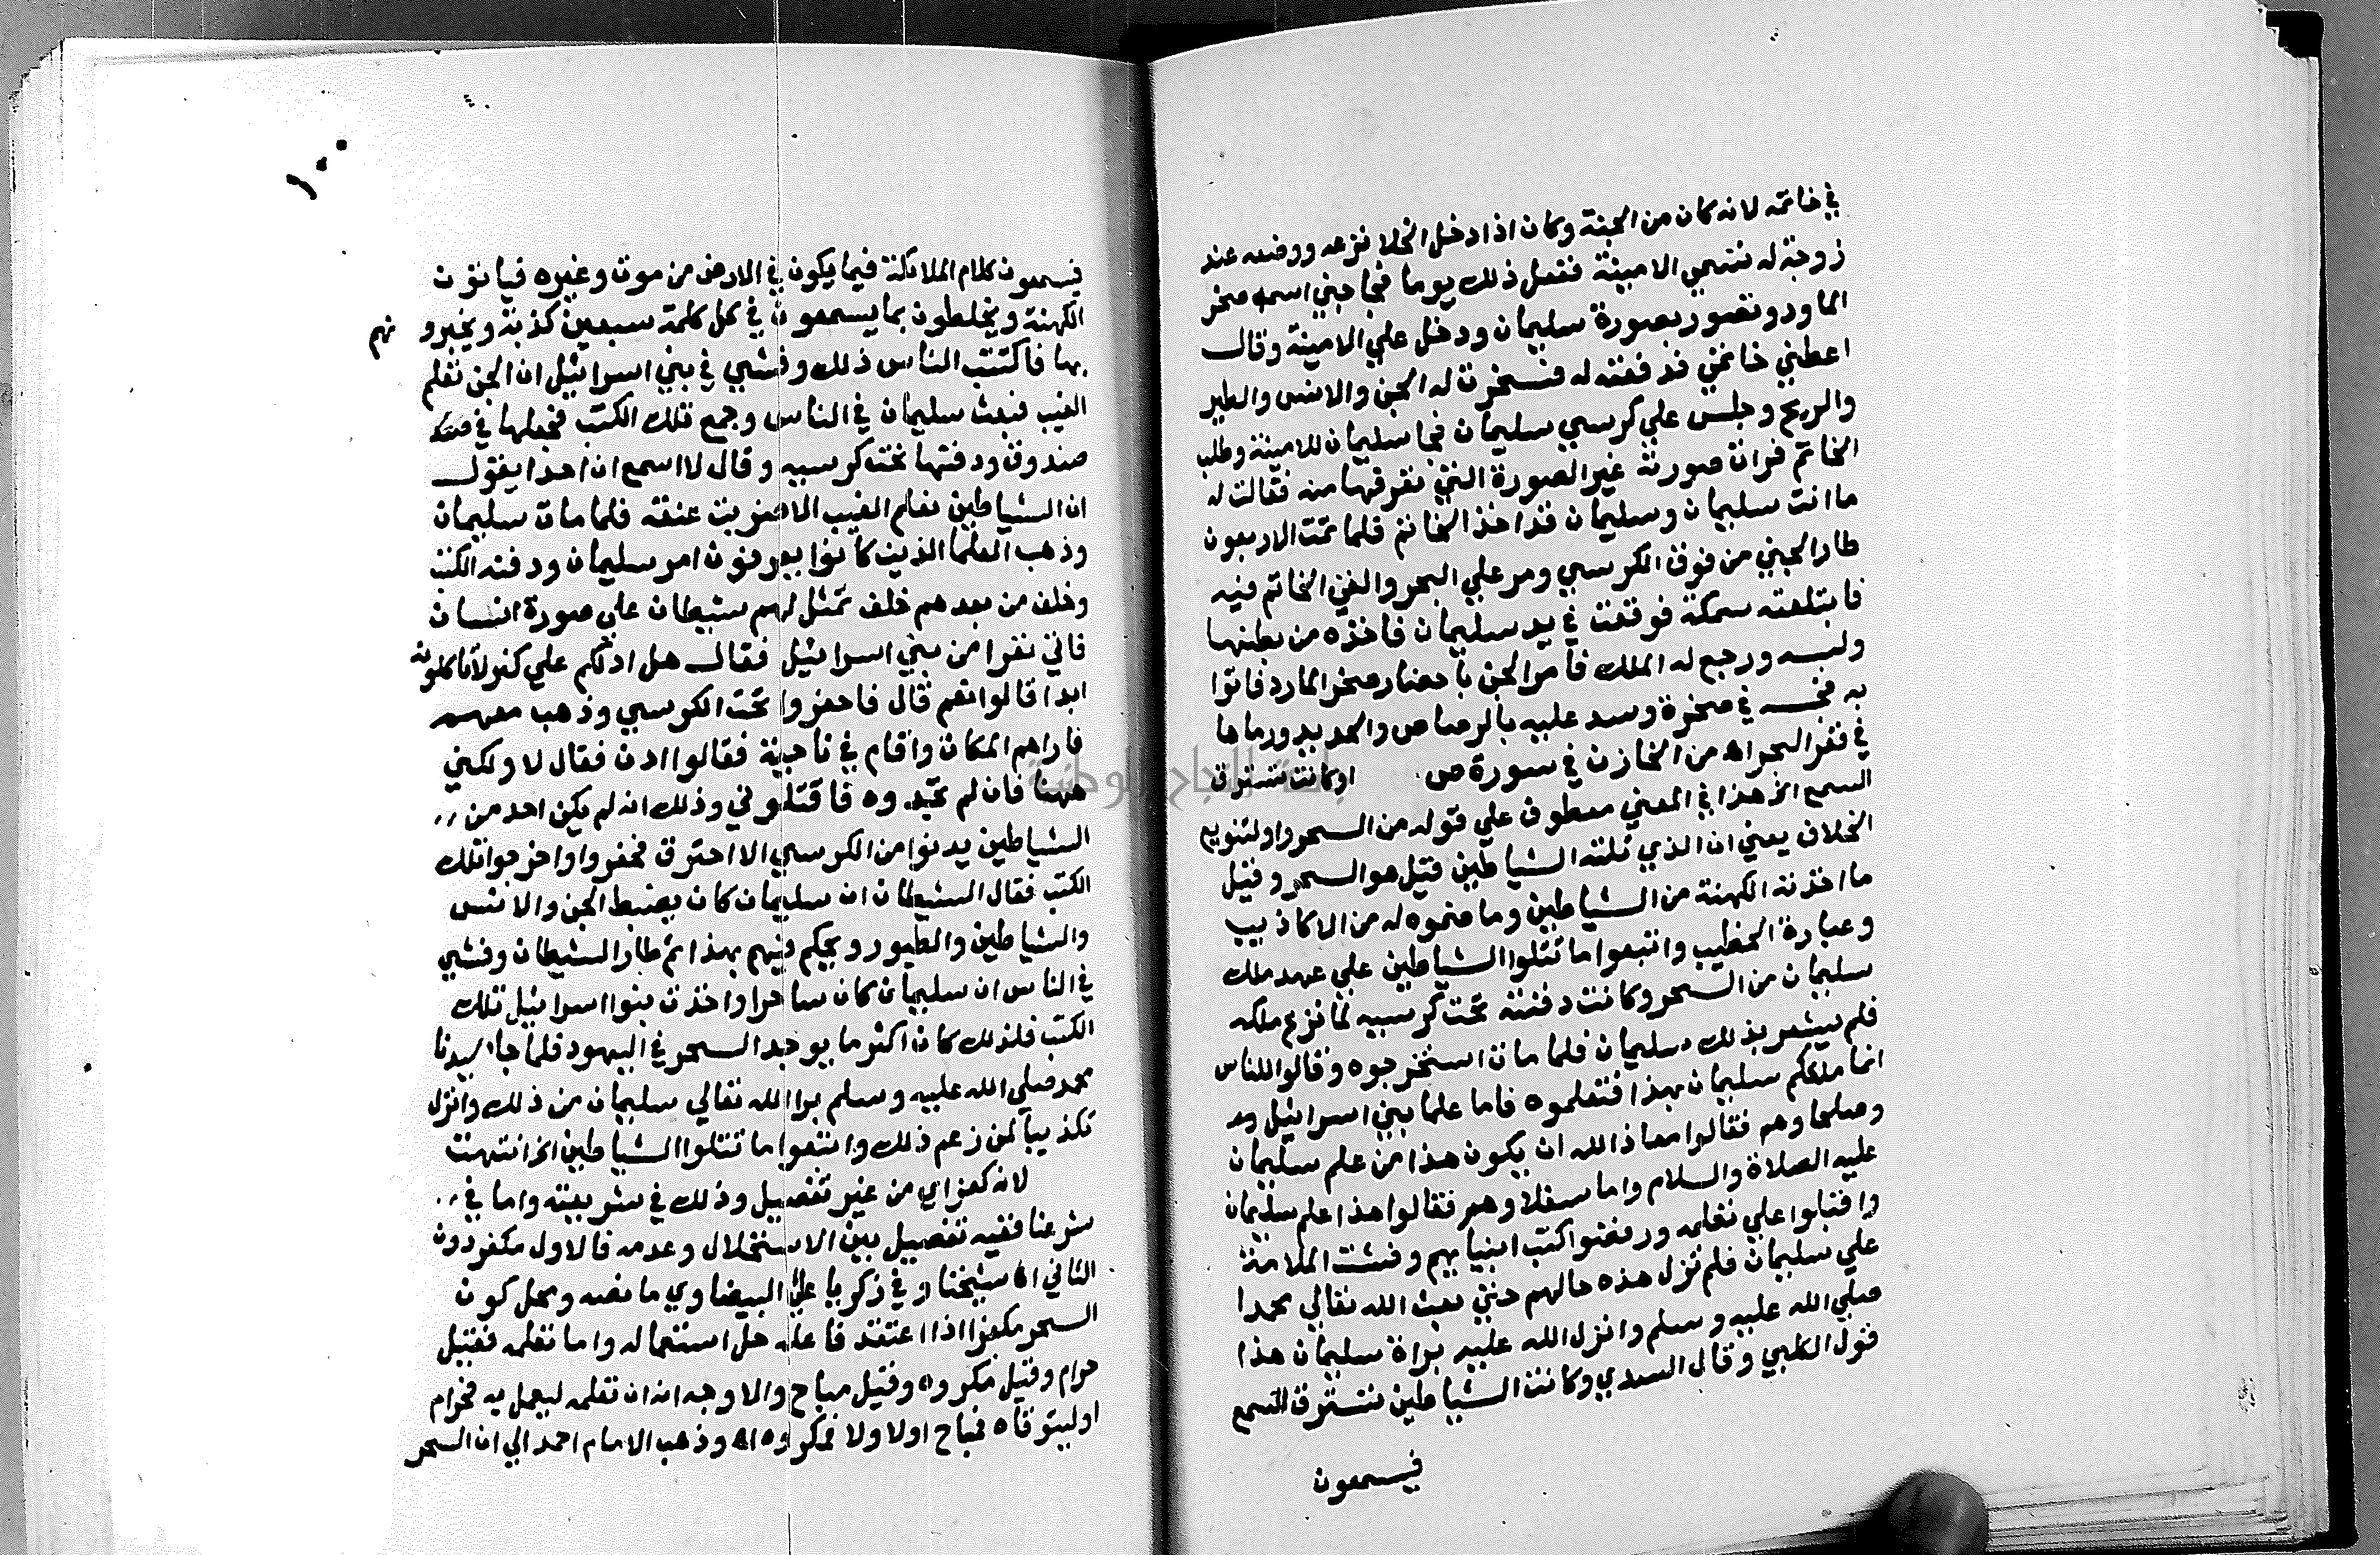 في خاتمه لانه كان من الجنة وكان اذا دخل الخلا نزعه ووضعه عند
زوجة له تسمي الامينة ففعل ذلك يوما فجا جني اسمه صخر
المارد وتصور بصورة سليمان ودخل علي الامينة وقال
اعطني خاتمي فدفعته له فسخرت له الجن والانس والطير
والريح وجلس علي كرسي سليمان فجا سليمان للامينة وطلب
الخاتم فرات صورته غير الصورة التي تعرفها منه فقالت له
ما انت سليمان وسليمان قد اخذ الخاتم فلما تمت الاربعون
طار الجني من فوق الكرسي ومر علي البحر والقي الخاتم فيه
فابتلعته سمكة فوقعت في يد سليمان فاخذه من بطنها
ولبسه ورجع له الملك فامر الجن باحضار صخر المارد فاتوا
به فحبسه في صخرة وسد عليه بالرصاص والحديد ورماها
في قعر البحر اه من الخازن في سورة ص او كانت تسترق
السمع الخ هذا في المعني معطوف علي قوله من السحر واو لتنويع
الخلاف يعني ان الذي تلته الشياطين قيل هو السحر وقيل
ما اخذته الكهنة من الشياطين وما ضموه له من الاكاذيب
وعبارة الخطيب واتبعوا ما تتلوا الشياطين علي عهد ملك
سليمان من السحر وكانت دفنته تحت كرسيه لما نزع ملكه
فلم يشعر بذلك سليمان فلما مات استخرجوه وقالوا للناس
انما ملككم سليمان بهذا فتعلموه فاما علما بني اسرائيل
وصلحاوهم فقالوا معاذ الله ان يكون هذا من علم سليمان
عليه الصلاة والسلام واما سفلاوهم فقالوا هذا علم سليمان
واقبلوا علي تعلمه ورفضوا كتب انبيايهم وفشت الملامة
علي سليمان فلم تزل هذه حالهم حتي بعث الله تعالي محمدا
صلي الله عليه وسلم وانزل الله عليه براة سليمان هذا
قول الكلبي وقال السدي وكانت الشياطين تسترق السمع
فيسمعون
١٠٠
فيسمعون كلام الملائكة فيما يكون في الارض من موت وغيره فياتون
الكهنة ويخلطون بما يسمعون في كل كلمة سبعين كذبة ويخبرو نهم
بها فاكتتب الناس ذلك وفشي في بني اسرائيل ان الجن تعلم
الغيب فبعث سليمان في الناس وجمع تلك الكتب فجعلها في
صندوق ودفنها تحت كرسيه وقال لا اسمع ان احدا يقول
ان الشياطين تعلم الغيب الا ضربت عنقه فلما مات سليمان
وذهب العلما الذين كانوا يعرفون امر سليمان ودفنه الكتب
وخلف من بعدهم خلف تمثل لهم شيطان علي صورة انسان
فاتي نفرا من بني اسرائيل فقال هل ادلكم علي كنز لا تاكلونه
ابدا قالوا نعم قال فاحفروا تحت الكرسي وذهب معهم
فاراهم المكان واقام في ناحية فقالوا ادن فقال لا ولكني
ههنا فان لم تجدوه فاقتلوني وذلك انه لم يكن احد من
الشياطين يدنوا من الكرسي الا احترق فحفروا واخرجوا تلك
الكتب فقال الشيطان ان سليمان كان يضبط الجن والانس
والشياطين والطيور ويحكم فيهم بهذا ثم طار الشيطان وفشي
في الناس ان سليمان كان ساحرا واخذت بنوا اسرائيل تلك
الكتب فلذلك كان اكثر ما يوجد السحر في اليهود فلما جا سيدنا
محمد صلي الله عليه وسلم برا الله تعالي سليمان من ذلك وانزل
تكذيبا لمن زعم ذلك واتبعوا ما تتلوا الشياطين الخ انتهت
لانه كفر اي من غير تفصيل وذلك في شريعته واما في
شرعنا ففيه تفصيل بين الاستحلال وعدمه فالاول مكفر دون
الثاني اه شيخنا وفي زكريا علي البيضاوي ما نصه ومحل كون
السحر مكفرا اذا اعتقد فاعله حل استعماله واما تعلمه فقيل
حرام وقيل مكروه وقيل مباح والاوجه انه ان تعلمه ليعمل به فحرام
او ليتوقاه فمباح اولا ولا فمكروه اه وذهب الامام احمد الي ان السحر
جامعة النجاح الوطنية